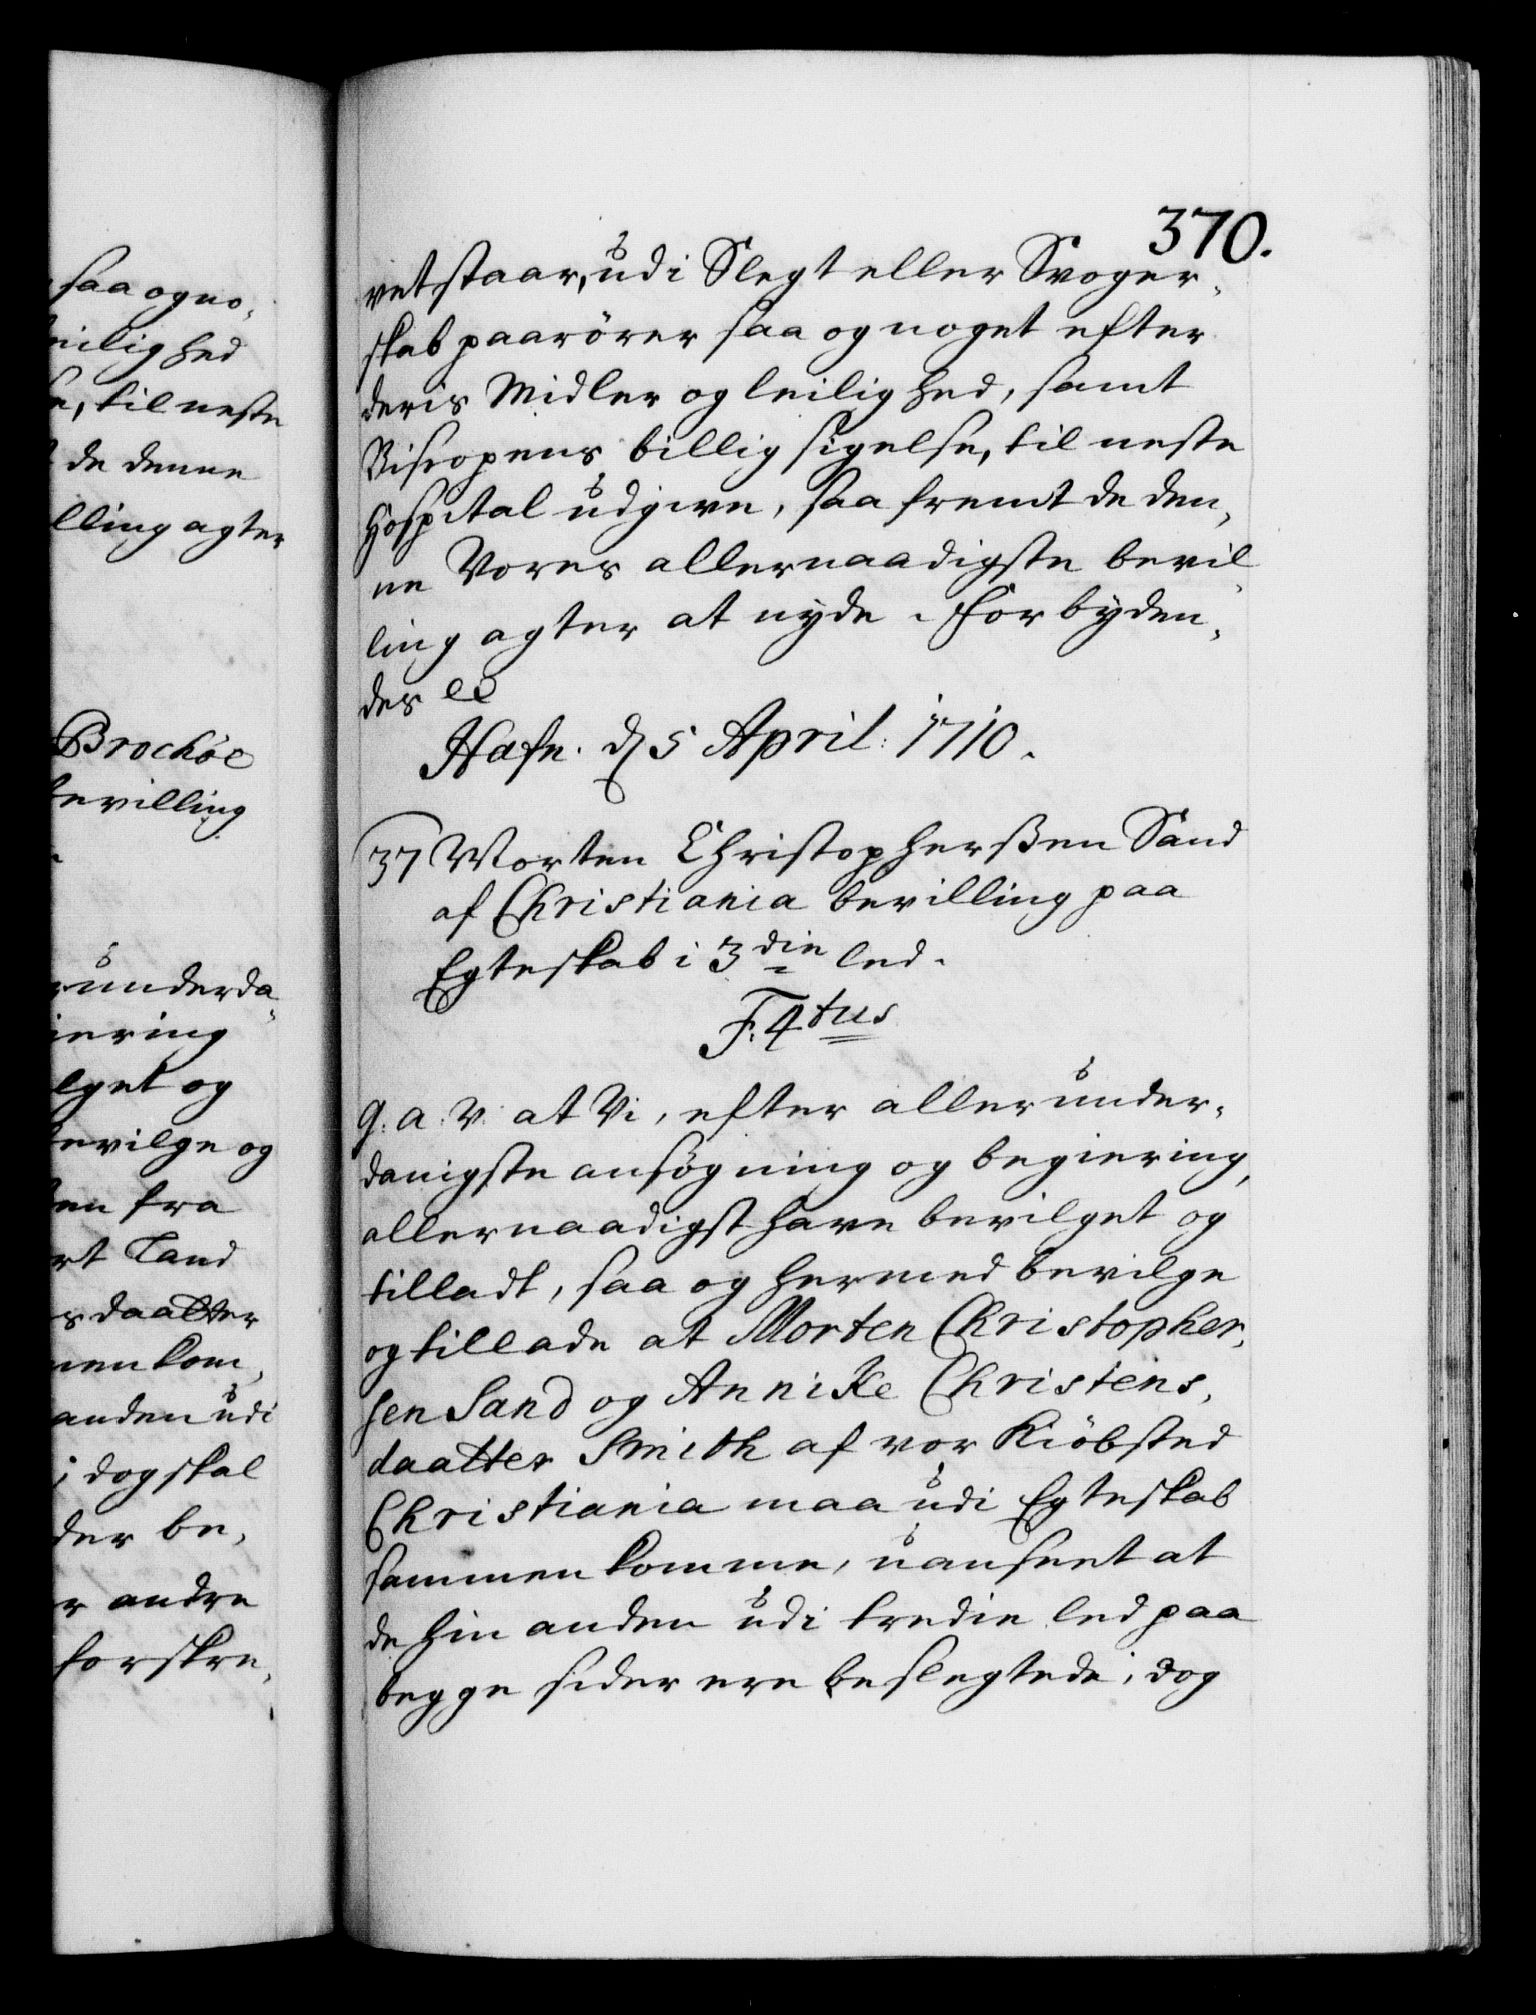 saa og no,
eilighed
e, til neste
de denne
lling agter
Brockøe
bevilling
underda,
iering
lget og
bevilge og
en fra
rt Land
s daatter
men kom,
anden udi
i dog skal
der be,
r andre
forskre,
370.
vet staar, udi Slegt eller Svoger,
skab paarörer saa og noget efter
deris Midler og leilighed, samt
Biscopens billig sigelse, til neste
Hospital udgive, saa fremt de den,
ne Vores allernaadigste bevil,
ling agter at nyde. Forbyden,
des &c
Hafn. d 5 April: 1710.
37 Morten Christopherßen Sand
af Christiania bevilling paa
Egteskab i 3die led.
F. 4tus
G. a. V. at Vi, efter allerunder,
danigste ansögning og begiering,
allernaadigst have bevilget og
tilladt, saa og hermed bevilge
og tillade at Morten Christopher,
sen Sand og Annike Christens,
daatter Smith af vor Kiöbsted
Christiania maa udi Egteskab
sammen komme, uanseet at
de hin anden udi tredie led paa
begge sider ere beslegtede, dog